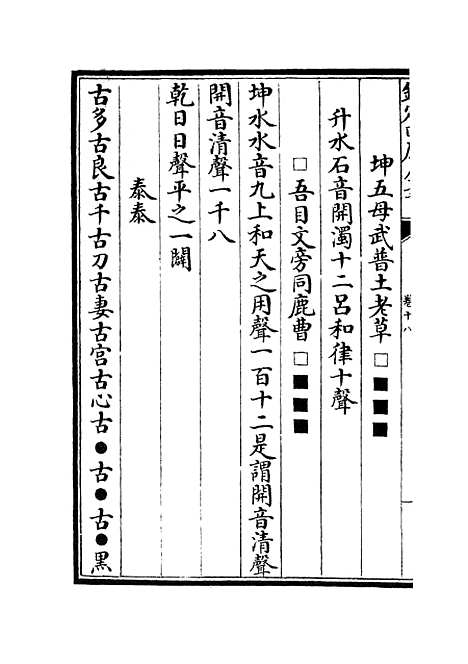 卷十八
坤五母武普土老草□■■■
升水石音開濁十二呂和律十聲
□吾目文旁同鹿曹□■■■
坤水水音九上和天之用聲一百十二是謂開音清聲
開音清聲一千八
乾日日聲平之一闢
泰泰
古多古良古千古刀古妻古宮古心古●古●古●黑